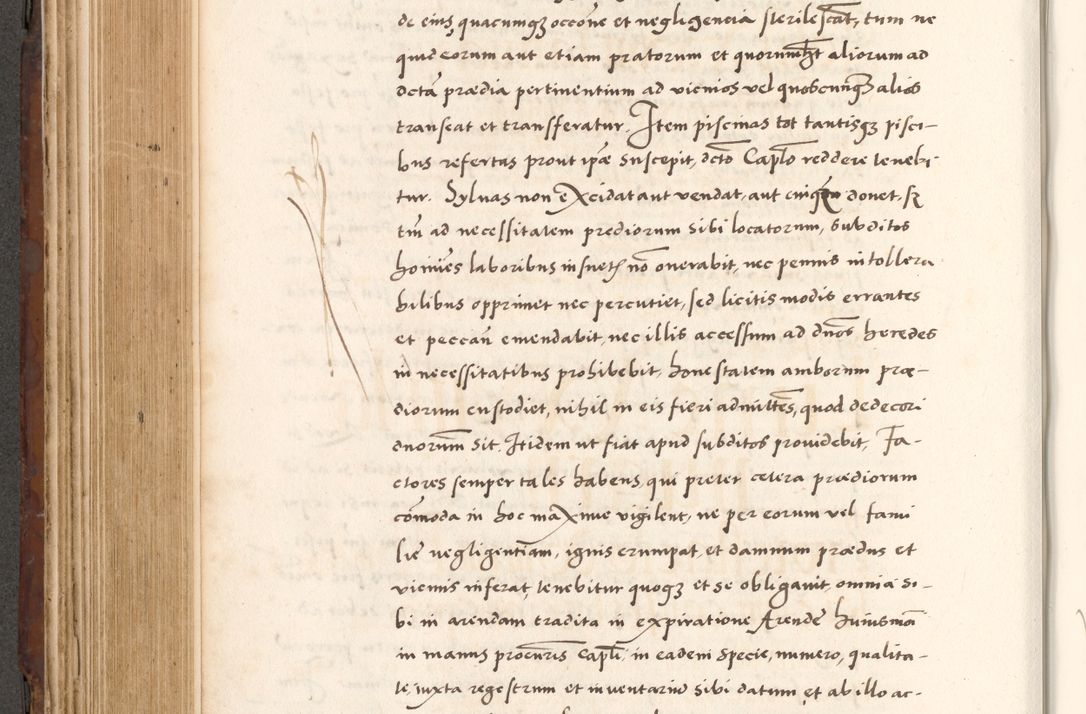 de eius quacumqȝ occōne et negligencia sterilescāt, tum ne
quid eorum aut etiam pratorum et quorumlibet aliorum ad
dctā prædia pertinentium ad vicnios vel quoscunqȝ alios
transeat et transferatur. Item piscinas tot tantisqȝ pisci-
bus refertas prout ipē suscepit, dctō Caplo reddere tenebi
tur. Sylvas non excidat aut vendat, aut cuiqȝ donet, sȝ
tm̄ ad necessitatem prediorum sibi locatorum, subditos
hoīes laboribus insuetȝ nō onerabit, nec pennis intollera
bilibus opprimet nec percutiet, sed licitis modis errantes
et peccan̄ emendabit, nec illis accessum ad dnōs heredes
in necessitatibus prohibebit, honestatem amborum præ-
diorum custodiet, nihil in eis fieri admittēs, quod dedecori
dnorum sit. Itidem ut fiat apud subditos providebit, Fa-
ctores semper tales habens, qui preter cetera prædiorum
cōmoda in hoc maxime vigilent, ne per eorum vel fami
lie negligentiam, ignis erumpat, et damnum prædiis et
vicinis inferat, tenebitur quoqȝ et se obligavit omnia si-
bi in arendam tradita in expiratione Arende huiusmōi
in manus procuris Capli, in eadem specie, numero, qualita-
te, iuxta regestrum et inventariū sibi datum et ab illo ac-